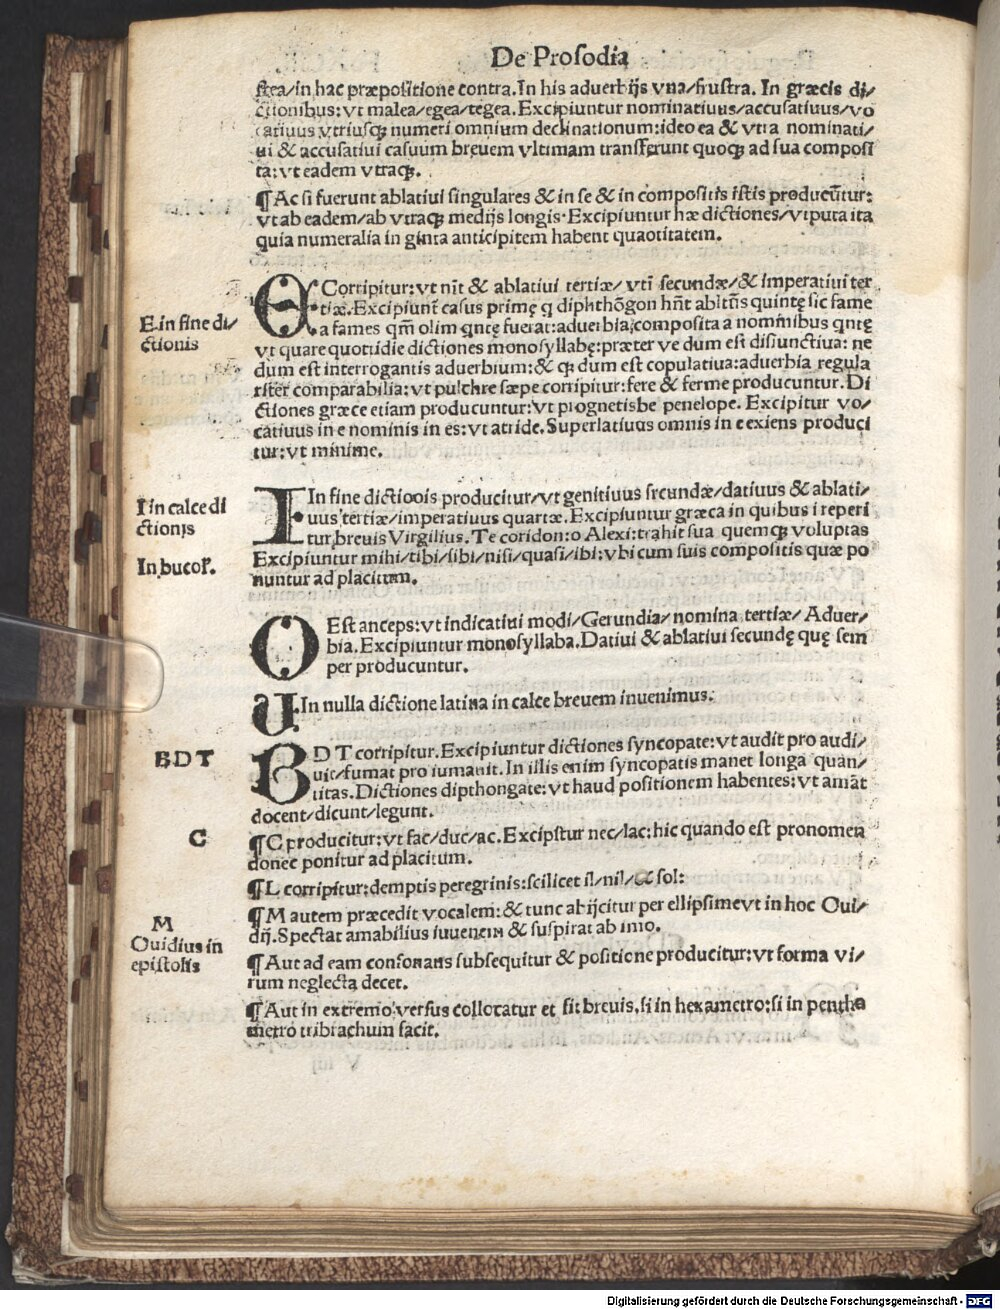 De Prosodia
stea/in hac præpositione contra. In his aduerbijs vna/frustra. In græcis di/
ctionibus: vt malea/egea/tegea. Excipiuntur nominatiuus/accusatiuus/vo
catiuus vtriusqꝫ numeri omnium declinationum: ideo ea & vtra nominati/
ui & accusatiui casuum breuem vltimam transferunt quoqꝫ ad sua composi
ta: vt eadem vtraqꝫ.
¶ Ac si fuerunt ablatiui singulares & in se & in compositis istis producūtur:
vt ab eadem/ab vtraqꝫ medijs longis. Excipiuntur hæ dictiones/vtputa ita
quia numeralia in ginta anticipitem habent quaotitatem.
E in fine di/
ctionis
E Corripitur: vt nīt & ablatiui tertiæ/ vti secundæ/& imperatiui ter
tiæ. Excipiunt casus primę q diphthōgon hñt abltñs quintę sic fame
a fames qm̄ olim qntę fuerat: aduerbia; composita a nominibus qntę
vt quare quotidie dictiones monosyllabę: præter ve dum est disiunctiua: ne
dum est interrogantis aduerbium: & qꝫ dum est copulatiua: aduerbia regula
riter comparabilia: vt pulchre sæpe corripitur: fere & ferme producuntur. Di
ctiones græce etiam producuntur: vt prognetisbe penelope. Excipitur vo/
catiuus in e nominis in es: vt atride. Superlatiuus omnis in e exiens produci
tur: vt minime.
I in calce di
ctionis
In bucoł.
I In fine dictioois producitur/vt genitiuus srcundæ/datiuus & ablati/
uus tertiæ/imperatiuus quartæ. Excipiuntur græca in quibus i reperi
tur breuis Virgilius. Te coridon: o Alexi: trahit sua quemqꝫ voluptas
Excipiuntur mihi/tibi/sibi/nisi/quasi/ibi: vbi cum suis compositis quæ po
nuntur ad placitum.
O Est anceps: vt indicatiui modi/Gerundia/nomina tertiæ/ Aduer/
bia. Excipiuntur monosyllaba. Datiui & ablatiui secundę quę sem
per producuntur.
U In nulla dictione latina in calce breuem inuenimus.
B D T
B D T corripitur. Excipiuntur dictiones syncopate: vt audit pro audi/
uit/fumat pro iumauit. In illis enim syncopatis manet longa quan/
titas. Dictiones dipthongate: vt haud positionem habentes: vt amāt
docent/dicunt/legunt.
C
¶ C producitur: vt fac/duc/ac. Excipitur nec/lac: hic quando est pronomen
donec ponitur ad placitum.
¶ L corripitur: demptis peregrinis: scilicet il/nil/& sol:
M
Ouidius in
epistolis
¶ M autem præcedit vocalem: & tunc abijcitur per ellipsim evt in hoc Oui/
dij. Spectat amabilius iuuenem & suspirat ab imo.
¶ Aut ad eam consonans subsequitur & positione producitur: vt forma vi/
rum neglecta decet.
¶ Aut in extremo versus collocatur et sit breuis, si in hexametro; si in pentha
metro tribrachum facit.
Digitalisierung gefördert durch die Deutsche Forschungsgemeinschaft - DFG